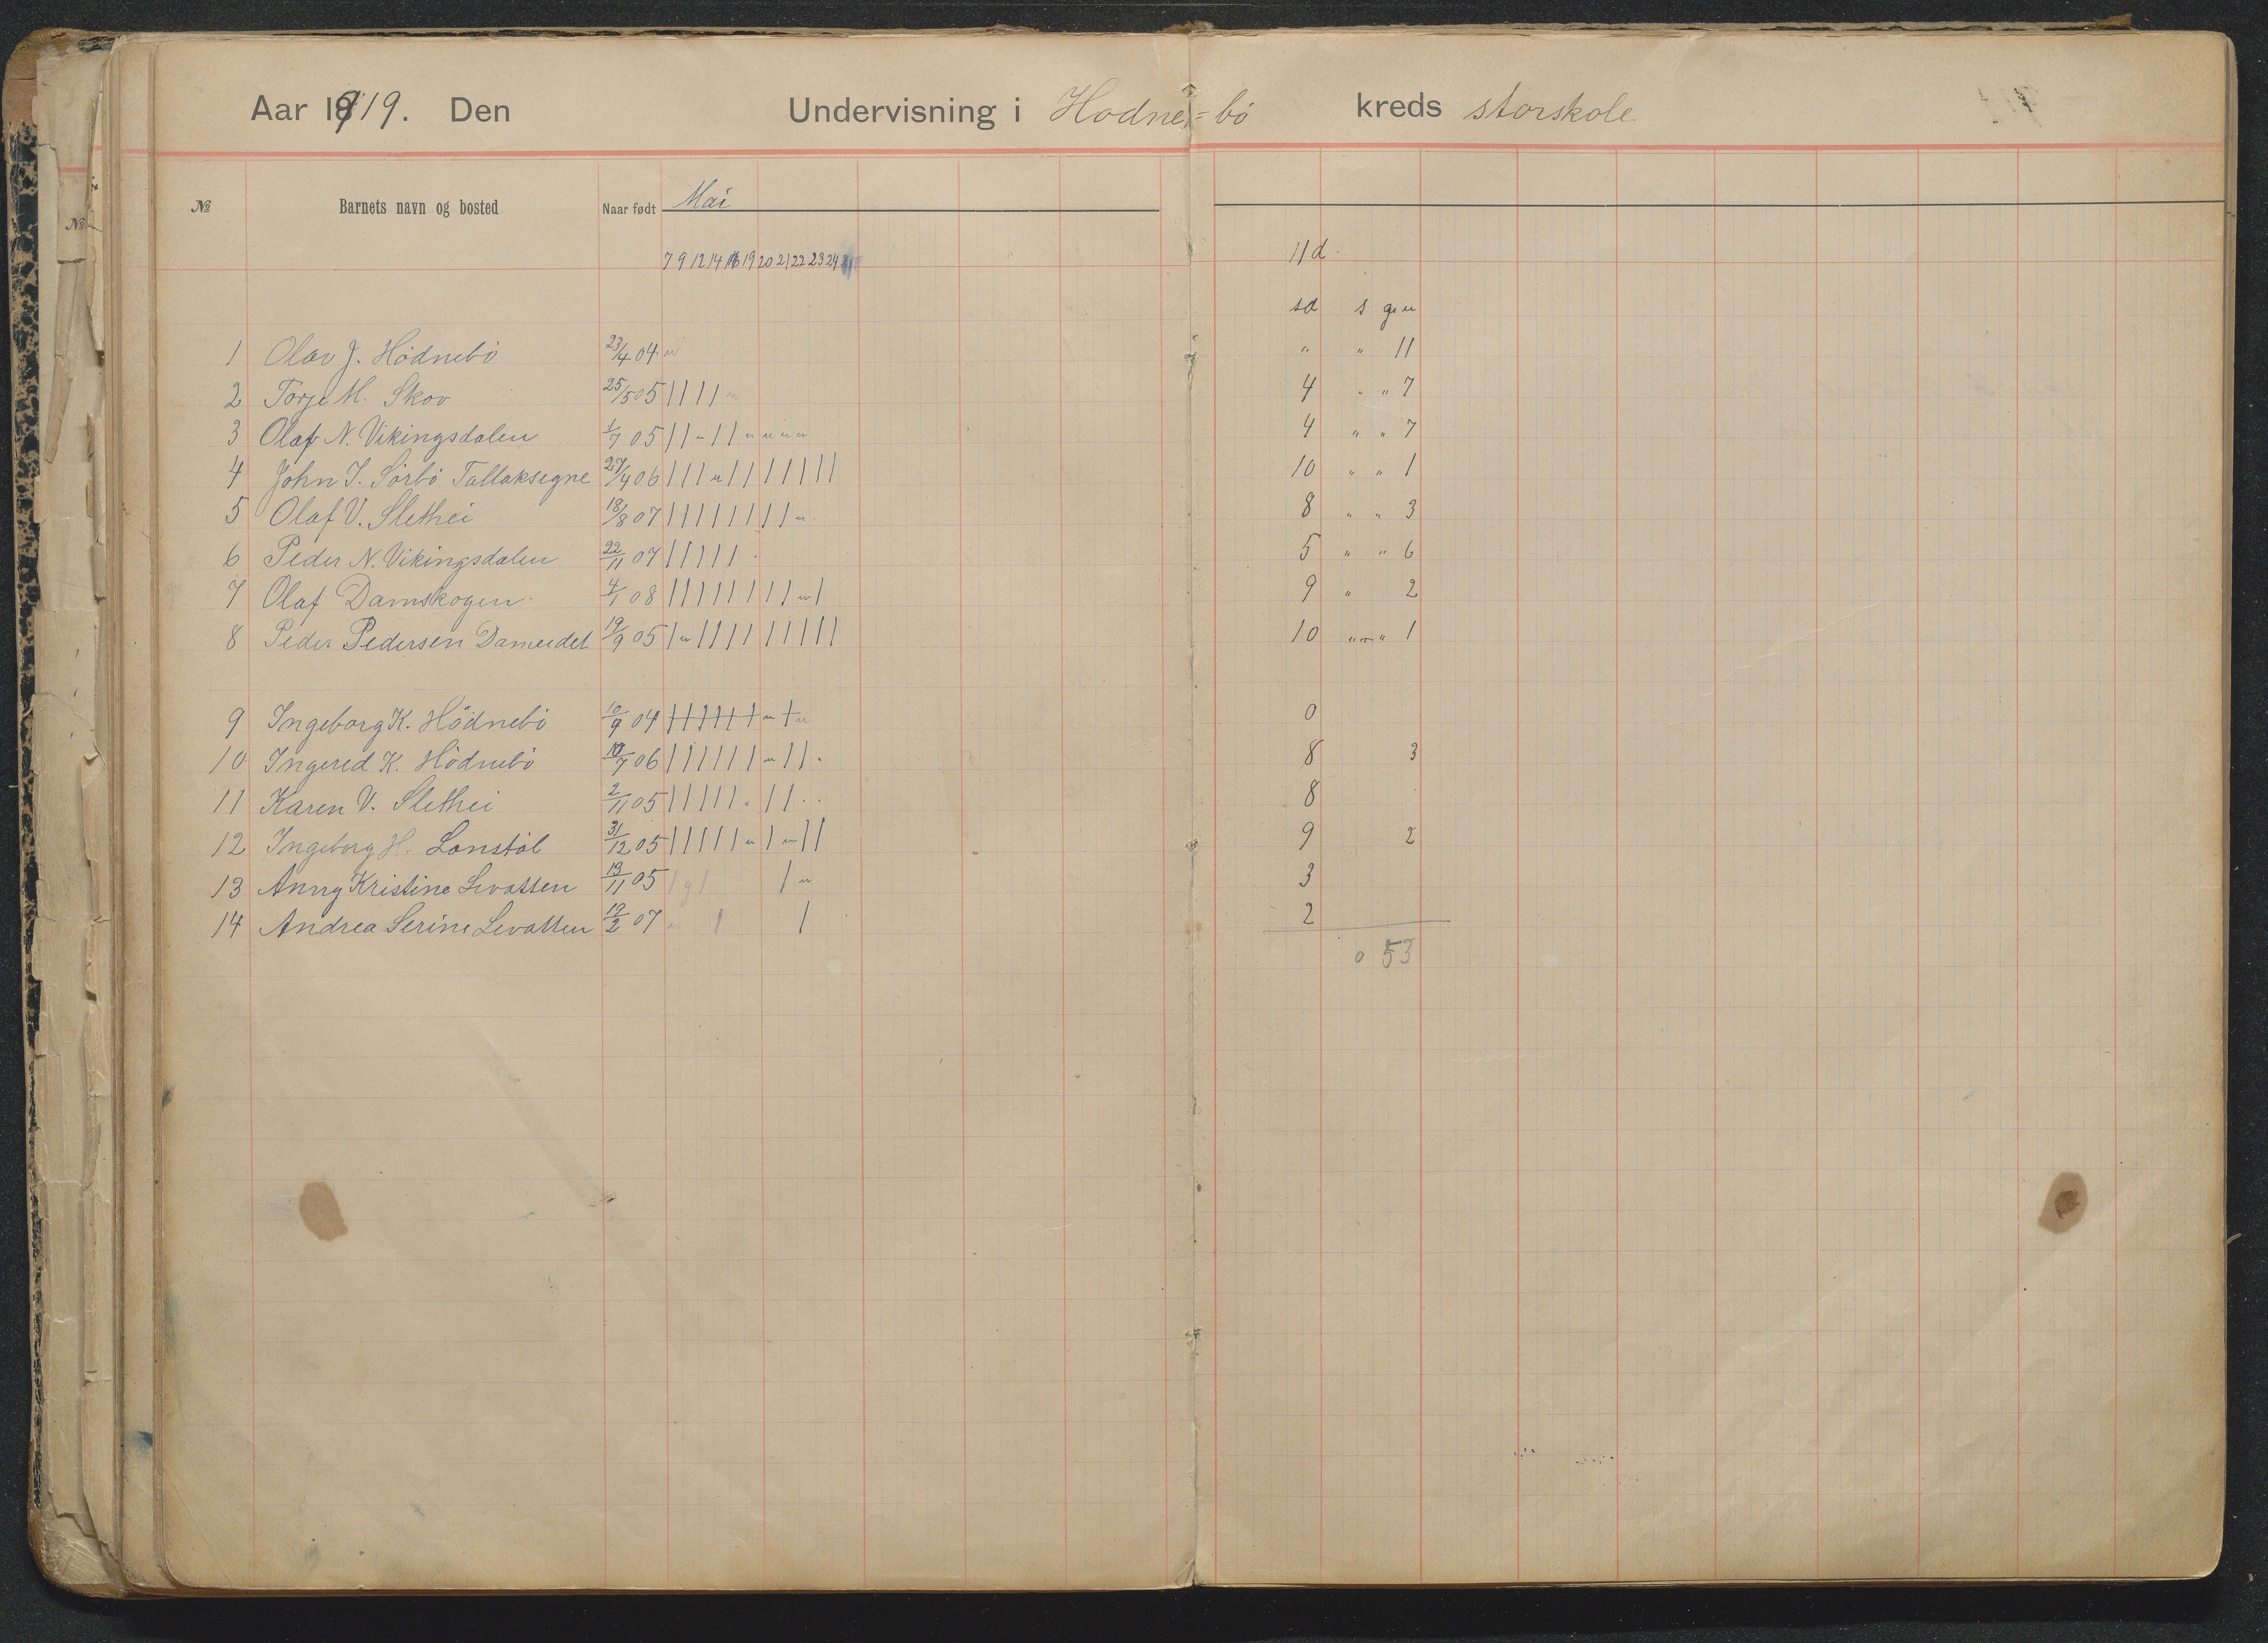 Aar 1919. Den Undervisning i Hodne=bö kreds storskole.
№ Barnets navn og bosted Naar født Mai
7 9 12 14 16 19 20 21 22 23 24 11 d.
sd s g u
1 Olav J. Hödnebö 23/4 04 " " " 11
2 Torje M. Skov 25/5 05 | | | | " 4 " " 7
3 Olaf N. Vikingsdalen 1/7 05 | | " | | " " " " 4 " " 7
4 John T. Sörbö Tallaksegne 27/4 06 | | | " | | | | | | | 10 " " 1
5 Olaf V. Slethei 18/8 07 | | | | | | | | " 8 " " 3
6 Peder N. Vikingsdalen 22/11 07 | | | | | 5 " " 6
7 Olaf Damskogen. 4/1 08 | | | | | | | | " | 9 " 2
8 Peder Pedersen Dameidet 19/9 05 | " | | | | | | | | | 10 " " " 1
9 Ingeborg K. Hödnebö 10/9 04 + + + + + + " + " 0
10 Ingered K. Hödnebö 10/7 06 | | | | | | " | | . 8 3
11 Karen V. Slethei 2/11 05 | | | | | . | | . . 8
12 Ingeborg H. Lonstöl 31/12 05 | | | | | " | " | | 9 2
13 Anny Kristine Levatten 13/11 05 | g | | " 3
14 Andrea Serine Levatten 19/2 07 " | | 2
0 53